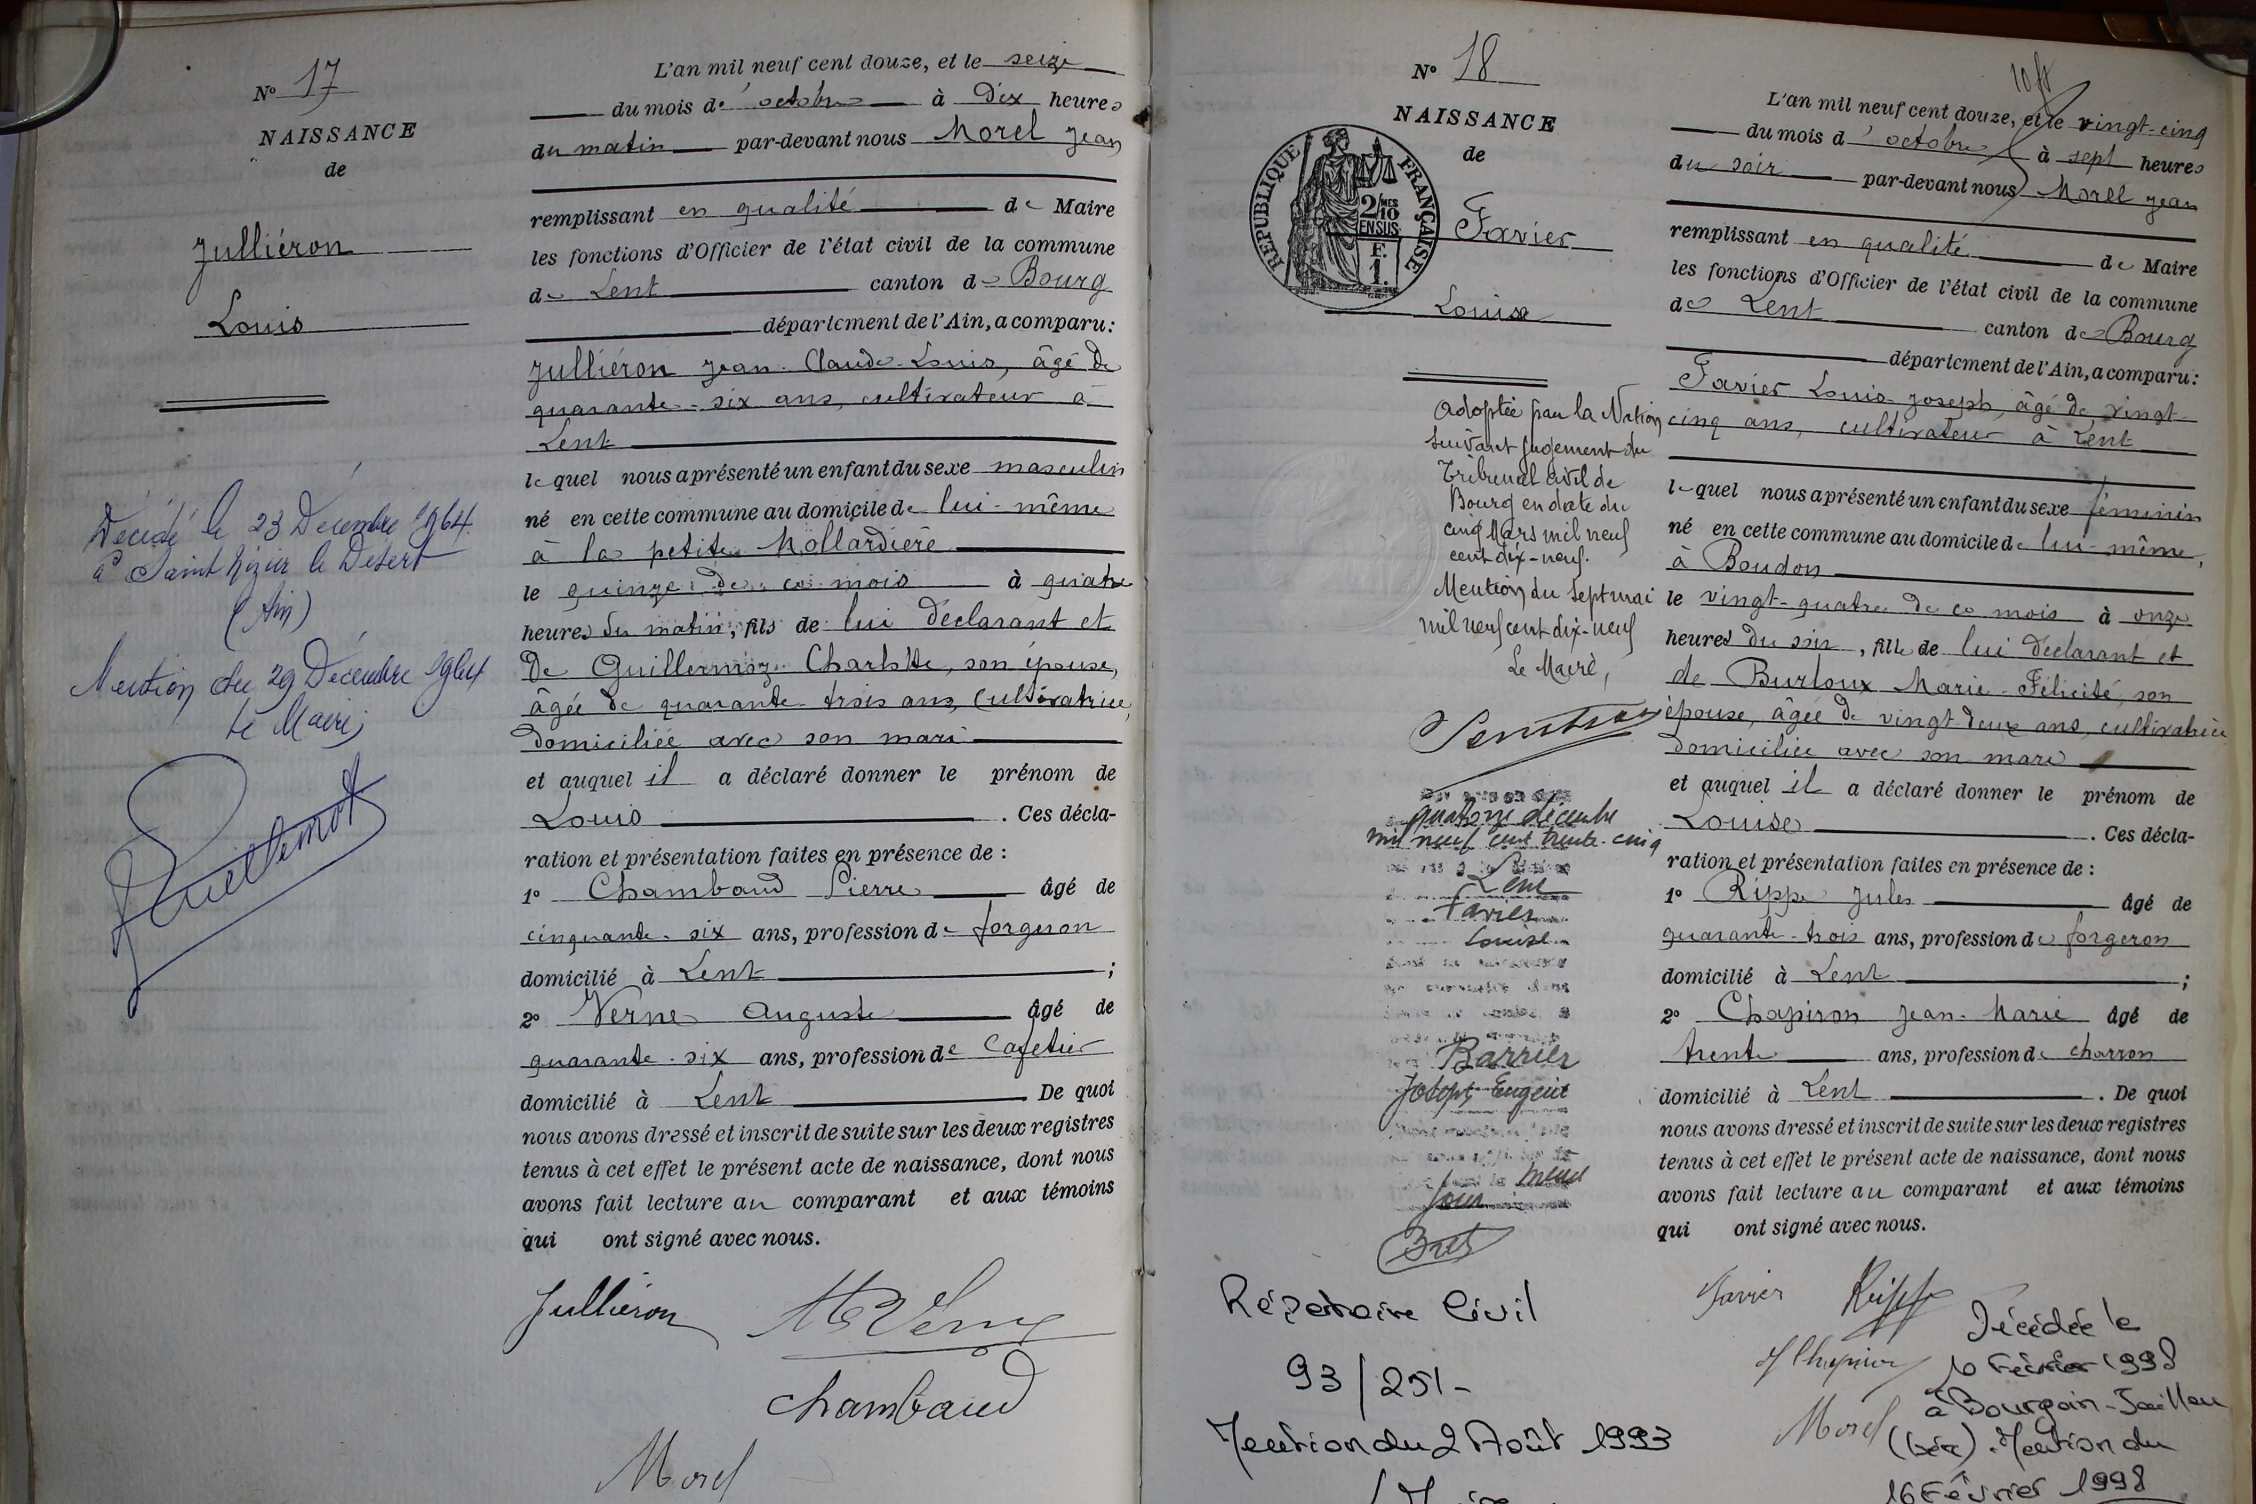 N° 17
NAISSANCE
de
Julliéron
Louis
Décédé le 23 Décembre 1964
à Saint Nizier le Désert
(Ain)
Mention du 29 Décembre 1964
Le Maire,
Guillemot
L'an mil neuf cent douze, et le seize
du mois d'octobre à dix heures
du matin par-devant nous Morel Jean
remplissant en qualité de Maire
les fonctions d'Officier de l'état civil de la commune
de Lent canton de Bourg
département de l'Ain, a comparu:
Julliéron Jean-Claude-Louis, âgé de
quarante-six ans, cultivateur à
Lent
lequel nous a présenté un enfant du sexe masculin
né en cette commune au domicile de lui-même
à la petite Mollardière
le quinze de ce mois à quatre
heures du matin, fils de lui déclarant et
de Guillermoz Charlotte, son épouse,
âgée de quarante-trois ans, cultivatrice,
domiciliée avec son mari
et auquel il a déclaré donner le prénom de
Louis. Ces décla-
ration et présentation faites en présence de :
1° Chambaud Pierre âgé de
cinquante-six ans, profession de forgeron
domicilié à Lent ;
2° Verne Auguste âgé de
quarante-six ans, profession de cafetier
domicilié à Lent De quoi
nous avons dressé et inscrit de suite sur les deux registres
tenus à cet effet le présent acte de naissance, dont nous
avons fait lecture au comparant et aux témoins
qui ont signé avec nous.
Julliéron Verne
Chambaud
Morel
N° 18
NAISSANCE
de
RÉPUBLIQUE FRANÇAISE
2/10 MES
EN SUS
F.
1.
Favier
Louise
Adoptée par la Nation
suivant jugement du
Tribunal civil de
Bourg en date du
cinq Mars mil neuf
cent dix-neuf.
Mention du sept mai
mil neuf cent dix-neuf
Le Maire,
quatorze décembre
mil neuf cent trente-cinq
Lent
Favier
Louise
Barrier
Joseph Eugène
Bret
Répertoire Civil
93/251-
Mention du 2 Août 1993
L'an mil neuf cent douze, et le vingt-cinq
du mois d'octobre à sept heures
du soir par-devant nous Morel Jean
remplissant en qualité de Maire
les fonctions d'Officier de l'état civil de la commune
de Lent canton de Bourg
département de l'Ain, a comparu:
Favier Louis-Joseph, âgé de vingt-
cinq ans, cultivateur à Lent
lequel nous a présenté un enfant du sexe féminin
né en cette commune au domicile de lui-même,
à Boudon
le vingt-quatre de ce mois à onze
heures du soir, fille de lui déclarant et
de Burloux Marie-Félicité, son
épouse, âgée de vingt deux ans, cultivatrice
domiciliée avec son mari
et auquel il a déclaré donner le prénom de
Louise. Ces décla-
ration et présentation faites en présence de :
1° Rippe Jules âgé de
quarante-trois ans, profession de forgeron
domicilié à Lent ;
2° Chapiron Jean-Marie âgé de
trente ans, profession de charron
domicilié à Lent. De quoi
nous avons dressé et inscrit de suite sur les deux registres
tenus à cet effet le présent acte de naissance, dont nous
avons fait lecture au comparant et aux témoins
qui ont signé avec nous.
Favier Rippe
Chapiron
Morel
Décédée le
10 Février 1998
à Bourgoin-Jailleu
(Isère). Mention du
16 Février 1998